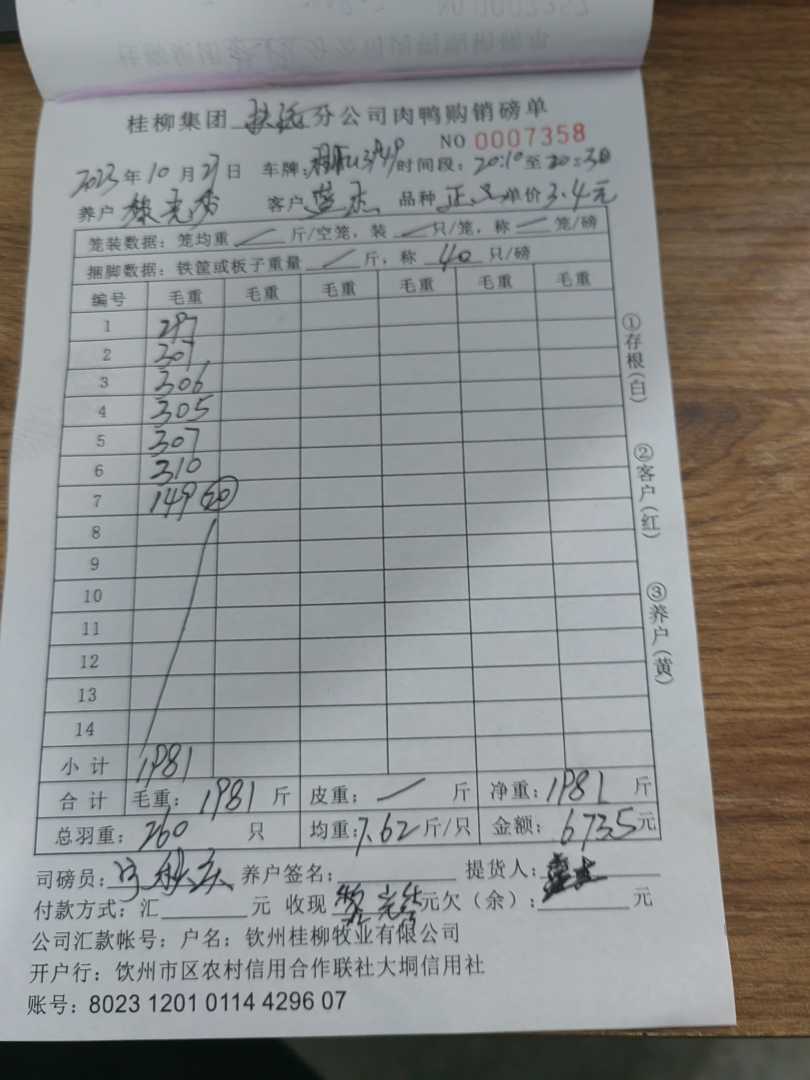 桂柳集团 扶绥 分公司肉鸭购销磅单
NO 0007358
2023 年 10 月 27 日 车牌: 时间段: 20:10 至 20:30
养户 客户 蓝杰 品种 正 单价 3.4元
笼装数据: 笼均重 / 斤/空笼, 装 / 只/笼, 称 / 笼/磅
捆脚数据: 铁筐或板子重量 / 斤, 称 40 只/磅
编号 毛重 毛重 毛重 毛重 毛重 毛重
1 297
2 307
3 306
4 305
5 307
6 310
7 149 20
8
9
10
11
12
13
14
小计 1981
合计 毛重: 1981 斤 皮重: / 斤 净重: 1981 斤
总羽重: 260 只 均重: 7.62 斤/只 金额: 6735 元
司磅员: 养户签名: 提货人:
付款方式: 汇 元 收现 元欠(余): 元
公司汇款帐号: 户名: 钦州桂柳牧业有限公司
开户行: 钦州市区农村信用合作联社大垌信用社
账号: 8023 1201 0114 4296 07
①存根(白)
②客户(红)
③养户(黄)